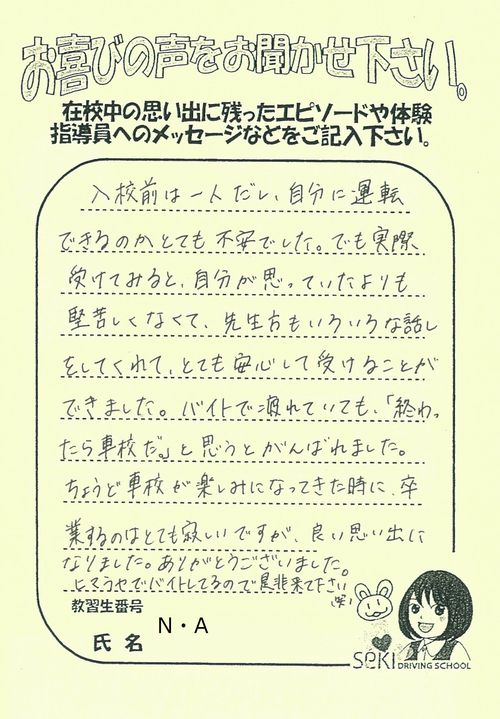 お喜びの声をお聞かせ下さい。
在校中の思い出に残ったエピソードや体験
指導員へのメッセージなどをご記入下さい。
入校前は一人だし、自分に運転
できるのかとても不安でした。でも実際
受けてみると、自分が思っていたよりも
堅苦しくなくて、先生方もいろいろな話し
をしてくれて、とても安心して受けることが
できました。バイトで疲れていても、「終わっ
たら車校だ。」と思うとがんばれました。
ちょうど車校が楽しみになってきた時に、卒
業するのはとても寂しいですが、良い思い出に
なりました。ありがとうございました。
ヒマラヤでバイトしてるので是非来て下さい
(笑)
教習生番号
氏名 N・A
SEKI DRIVING SCHOOL